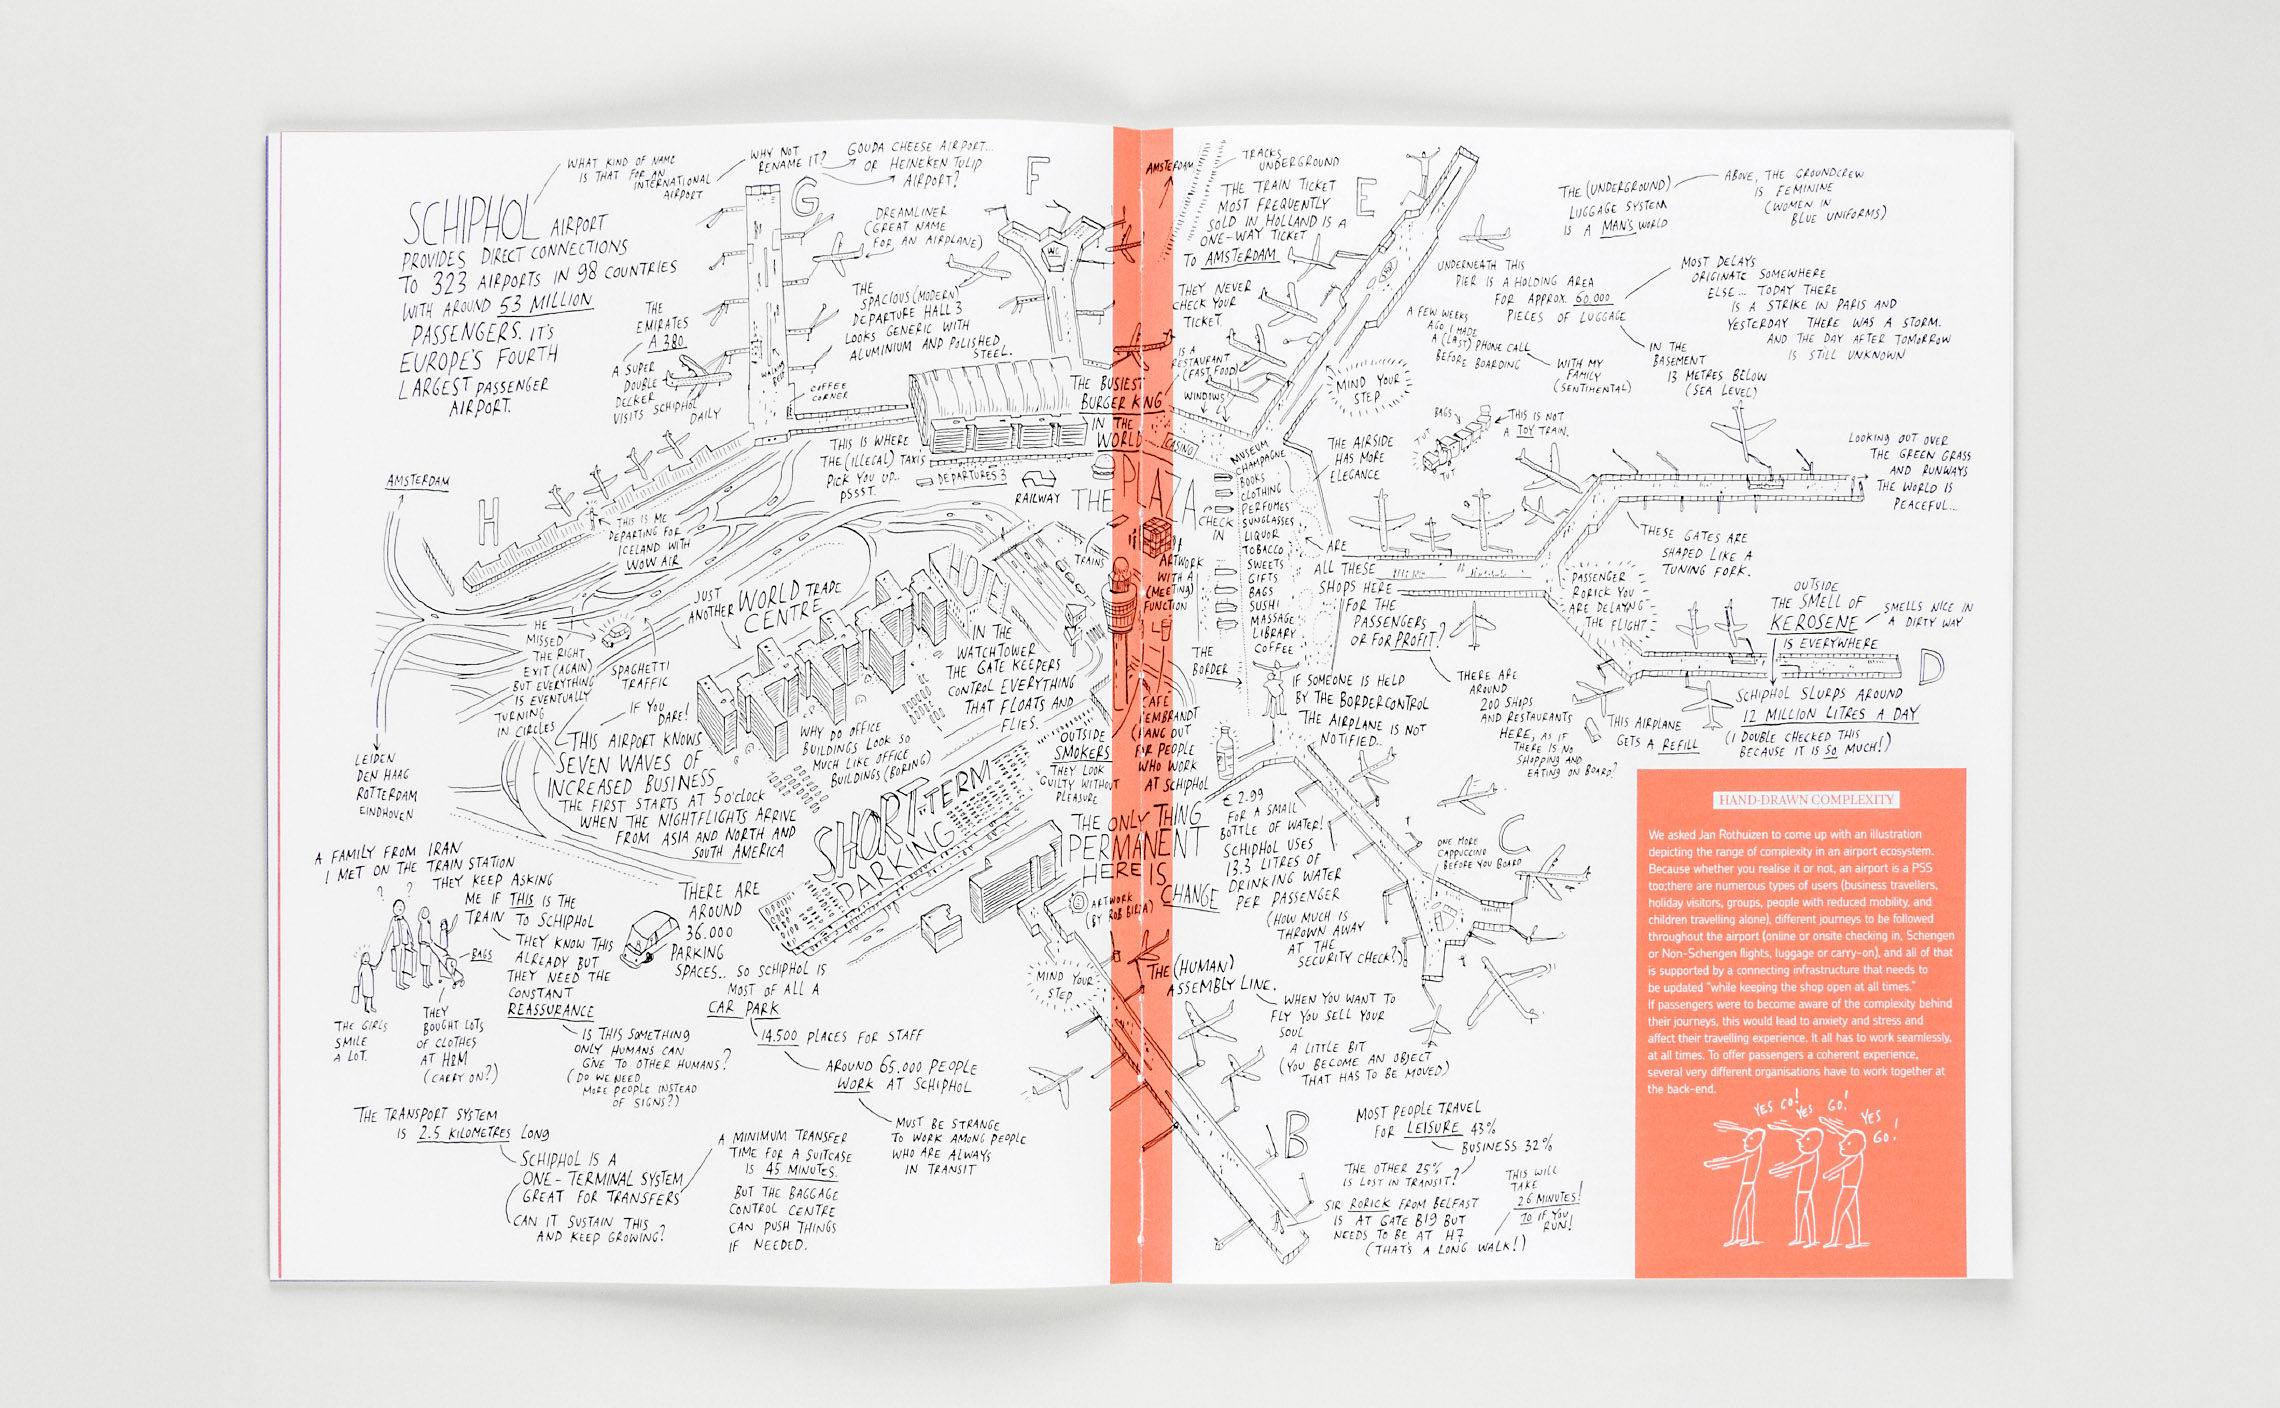 WHAT KIND OF NAME
IS THAT FOR AN
INTERNATIONAL
AIRPORT
WHY NOT
RENAME IT?
GOUDA CHEESE AIRPORT...
OR HEINEKEN TULIP
AIRPORT?
SCHIPHOL AIRPORT
PROVIDES DIRECT CONNECTIONS
TO 323 AIRPORTS IN 98 COUNTRIES
WITH AROUND 53 MILLION
PASSENGERS. IT'S
EUROPE'S FOURTH
LARGEST PASSENGER
AIRPORT.
G
F
DREAMLINER
(GREAT NAME
FOR AN AIRPLANE)
WC
THE
EMIRATES
A 380
A SUPER
DOUBLE
DECKER
VISITS SCHIPHOL
DAILY
THE
SPACIOUS (MODERN)
DEPARTURE HALL 3
LOOKS GENERIC WITH
ALUMINIUM AND POLISHED
STEEL.
WALKING
COFFEE
CORNER
THE BUSIEST
BURGER KING
IN THE
WORLD
IS A
RESTAURANT
(FAST FOOD)
WINDOWS
CASINO
THIS IS WHERE
THE (ILLEGAL) TAXIS
PICK YOU UP..
PSSST.
DEPARTURES 3
RAILWAY
THE PLAZA
AMSTERDAM
H
THIS IS ME
DEPARTING FOR
ICELAND WITH
WOW AIR
JUST
ANOTHER
WORLD TRADE
CENTRE
HOTEL
TRAINS
ARTWORK
WITH A
(MEETING)
FUNCTION
HE
MISSED
THE RIGHT
EXIT (AGAIN)
BUT EVERYTHING
IS EVENTUALLY
TURNING
IN CIRCLES
SPAGHETTI
TRAFFIC
IF YOU
DARE!
IN THE
WATCHTOWER
THE GATE KEEPERS
CONTROL EVERYTHING
THAT FLOATS AND
FLIES.
THIS AIRPORT KNOWS
SEVEN WAVES OF
INCREASED BUSINESS
THE FIRST STARTS AT 5 O'CLOCK
WHEN THE NIGHTFLIGHTS ARRIVE
FROM ASIA AND NORTH AND
SOUTH AMERICA
WHY DO OFFICE
BUILDINGS LOOK SO
MUCH LIKE OFFICE
BUILDINGS (BORING)
OUTSIDE
SMOKERS
THEY LOOK
GUILTY WITHOUT
PLEASURE
CAFE
REMBRANDT
(HANG OUT
FOR PEOPLE
WHO WORK
AT SCHIPHOL
LEIDEN
DEN HAAG
ROTTERDAM
EINDHOVEN
SHORT-TERM
PARKING
THE ONLY THING
PERMANENT
HERE IS
CHANGE
ARTWORK
A FAMILY FROM IRAN
I MET ON THE TRAIN STATION
THEY KEEP ASKING
ME IF THIS IS THE
TRAIN TO SCHIPHOL
? ?
THEY KNOW THIS
ALREADY BUT
THEY NEED THE
CONSTANT
REASSURANCE
BAGS
THE GIRLS
SMILE
A LOT.
THEY
BOUGHT LOTS
OF CLOTHES
AT H&M
(CARRY ON?)
IS THIS SOMETHING
ONLY HUMANS CAN
GIVE TO OTHER HUMANS?
(DO WE NEED
MORE PEOPLE INSTEAD
OF SIGNS?)
THERE ARE
AROUND
36.000
PARKING
SPACES.. SO SCHIPHOL IS
MOST OF ALL A
CAR PARK
14.500 PLACES FOR STAFF
AROUND 65.000 PEOPLE
WORK AT SCHIPHOL
MUST BE STRANGE
TO WORK AMONG PEOPLE
WHO ARE ALWAYS
IN TRANSIT
THE TRANSPORT SYSTEM
IS 2.5 KILOMETRES LONG
SCHIPHOL IS A
ONE-TERMINAL SYSTEM
GREAT FOR TRANSFERS
CAN IT SUSTAIN THIS
AND KEEP GROWING?
A MINIMUM TRANSFER
TIME FOR A SUITCASE
IS 45 MINUTES.
BUT THE BAGGAGE
CONTROL CENTRE
CAN PUSH THINGS
IF NEEDED.
AMSTERDAM
TRACKS
UNDERGROUND
THE TRAIN TICKET
MOST FREQUENTLY
SOLD IN HOLLAND IS A
ONE-WAY TICKET
TO AMSTERDAM
THEY NEVER
CHECK YOUR
TICKET.
E
THE (UNDERGROUND)
LUGGAGE SYSTEM
IS A MAN'S WORLD
ABOVE, THE GROUNDCREW
IS FEMININE
(WOMEN IN
BLUE UNIFORMS)
UNDERNEATH THIS
PIER IS A HOLDING AREA
FOR APPROX. 60.000
PIECES OF LUGGAGE
MOST DELAYS
ORIGINATE SOMEWHERE
ELSE... TODAY THERE
IS A STRIKE IN PARIS AND
YESTERDAY THERE WAS A STORM.
AND THE DAY AFTER TOMORROW
IS STILL UNKNOWN
A FEW WEEKS
AGO I MADE
A (LAST) PHONE CALL
BEFORE BOARDING
WITH MY
FAMILY
(SENTIMENTAL)
IN THE
BASEMENT
13 METRES BELOW
(SEA LEVEL)
MIND YOUR
STEP
BAGS
TUT
TUT
THIS IS NOT
A TOY TRAIN.
THE AIRSIDE
HAS MORE
ELEGANCE
MUSEUM
CHAMPAGNE
BOOKS
CLOTHING
PERFUMES
SUNGLASSES
LIQUOR
TOBACCO
SWEETS
GIFTS
BAGS
SUSHI
MASSAGE
LIBRARY
COFFEE
CHECK
IN
THE
BORDER
ARE
ALL THESE
SHOPS HERE
FOR THE
PASSENGERS
OR FOR PROFIT?
THERE ARE
AROUND
200 SHOPS
AND RESTAURANTS
HERE, AS IF
THERE IS NO
SHOPPING AND
EATING ON BOARD?
LOOKING OUT OVER
THE GREEN GRASS
AND RUNWAYS
THE WORLD IS
PEACEFUL...
THESE GATES ARE
SHAPED LIKE A
TUNING FORK.
PASSENGER
RORICK YOU
ARE DELAYING
THE FLIGHT
OUTSIDE
THE SMELL OF
KEROSENE
IS EVERYWHERE
SMELLS NICE IN
A DIRTY WAY
D
SCHIPHOL SLURPS AROUND
12 MILLION LITRES A DAY
(I DOUBLE CHECKED THIS
BECAUSE IT IS SO MUCH!)
THIS AIRPLANE
GETS A REFILL
IF SOMEONE IS HELD
BY THE BORDERCONTROL
THE AIRPLANE IS NOT
NOTIFIED..
€ 2.99
FOR A SMALL
BOTTLE OF WATER!
SCHIPHOL USES
13.3 LITRES OF
DRINKING WATER
PER PASSENGER
(HOW MUCH IS
THROWN AWAY
AT THE
SECURITY CHECK?)
ONE MORE
CAPPUCCINO
BEFORE YOU BOARD
C
MIND YOUR
STEP
THE (HUMAN)
ASSEMBLY LINE.
WHEN YOU WANT TO
FLY YOU SELL YOUR
SOUL
A LITTLE BIT
(YOU BECOME AN OBJECT
THAT HAS TO BE MOVED)
B
MOST PEOPLE TRAVEL
FOR LEISURE 43%
BUSINESS 32%
THE OTHER 25%
IS LOST IN TRANSIT?
SIR RORICK FROM BELFAST
IS AT GATE B19 BUT
NEEDS TO BE AT H7
(THAT'S A LONG WALK!)
THIS WILL
TAKE
26 MINUTES!
10 IF YOU
RUN!
HAND-DRAWN COMPLEXITY
We asked Jan Rothuizen to come up with an illustration
depicting the range of complexity in an airport ecosystem.
Because whether you realise it or not, an airport is a PSS
too;there are numerous types of users (business travellers,
holiday visitors, groups, people with reduced mobility, and
children travelling alone), different journeys to be followed
throughout the airport (online or onsite checking in, Schengen
or Non-Schengen flights, luggage or carry-on), and all of that
is supported by a connecting infrastructure that needs to
be updated "while keeping the shop open at all times."
If passengers were to become aware of the complexity behind
their journeys, this would lead to anxiety and stress and
affect their travelling experience. It all has to work seamlessly,
at all times. To offer passengers a coherent experience,
several very different organisations have to work together at
the back-end.
YES GO!
YES GO!
YES GO!